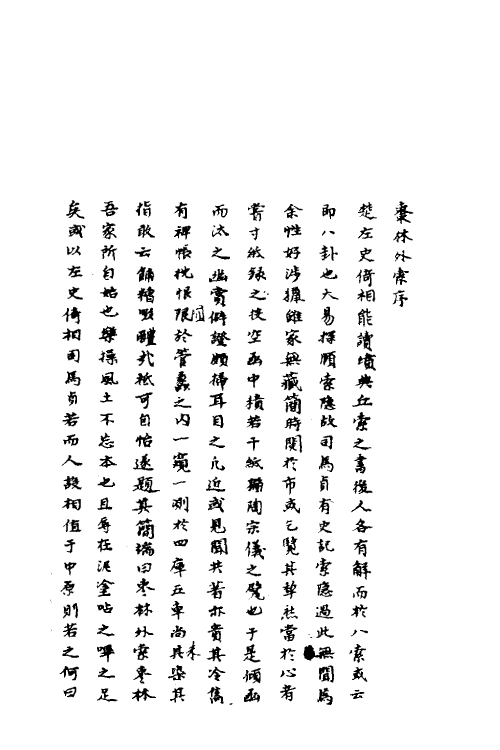 棗林外索序
楚左史倚相能讀墳典丘索之書後人各有解而於八索或云
即八卦也大易探頥索隱故司馬貞有史記索隱過此無聞焉
余性好涉獵雖家無藏簡時閱於市或乞覽其犂然當於心者
嘗寸紙錄之投空函中積若干紙猶陶宗儀之甓也于是傾函
而汰之幽賞僻證頗掃耳目之凡近或見聞共著亦貴其冷雋
有裨帳枕恨限國於管蠡之内一窺一測於四庫五車尚未具染其
指敢云餔糟啜醴哉祗可自怡遂題其簡端曰棗林外索棗林
吾家所自始也樂操風土不忘本也且辱在泥塗呫之嗶之足
矣或以左史倚相司馬貞若而人設相值于中原則若之何曰